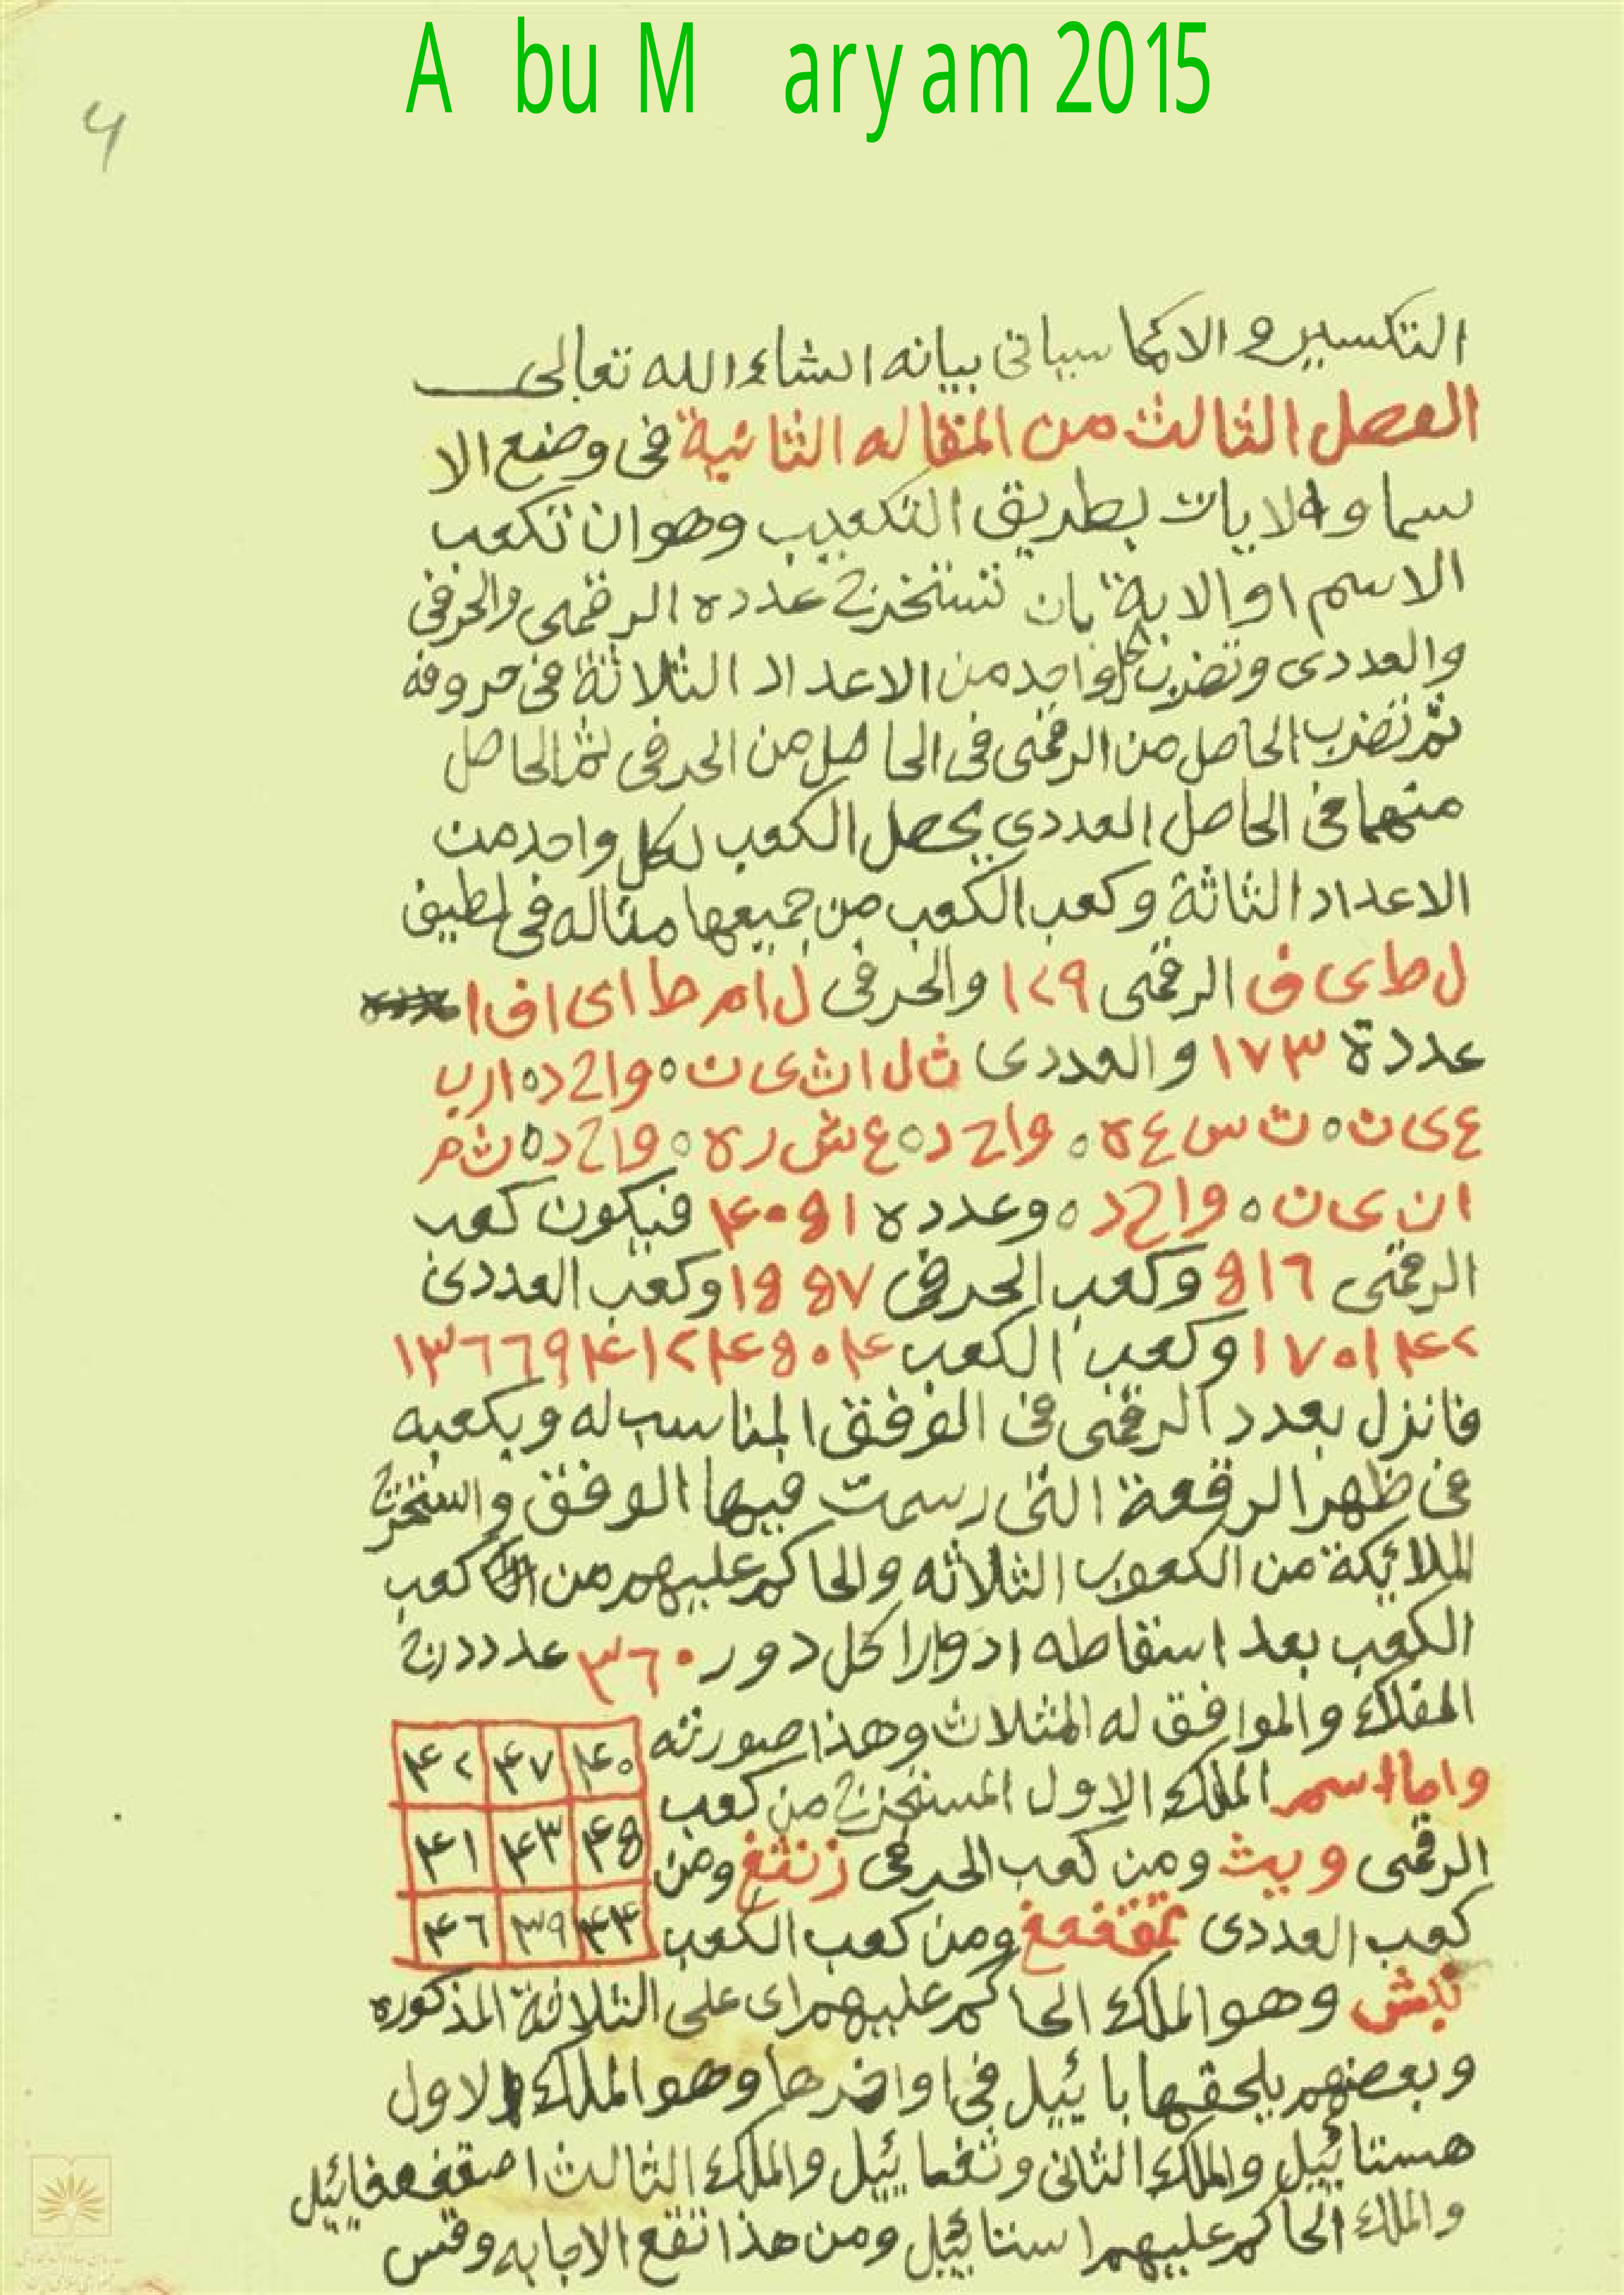 A bu M ary am 2015
4
التكسير و الا كما سياتى بيانه انشاء الله تعالى
الفصل الثالث من المقاله الثانية فى وضع الا
سما و الايات بطريق التكعيب وهو ان تكعب
الاسم او الاية بان تستخرج عدده الرقمى والحرفى
والعددى وتضرب كل واحد من الاعداد الثلاثة فى حروفه
ثم تضرب الحاصل من الرقمى فى الحاصل من الحرفى ثم الحاصل
منهما فى الحاصل العددي يحصل الكعب لكل واحد من
الاعداد الثاثة وكعب الكعب من جميعها مثاله فى لطيف
ل ط ى ف الرقمى ١٢٩ والحرفى ل ا م ط ا ى ا ف ا
عددة ١٧٣ والعددى ث ل ا ث ى ن ٥ و ا ح د ٥ ا ر ب
ع ى ن ٥ ت س ع ة ٥ و ا ح د ٥ ع ش ر ة ٥ و ا ح د ٥ ث م
ا ن ى ن ٥ و ا ح د ٥ وعدده ٤٠٥١ فيكون كعب
الرقمى ٥١٦ وكعب الحرفى ١٥٥٧ وكعب العددى
١٧٠١٤٢ وكعب الكعب ١٣٦٦٩٤١٢٤٥٠٤
فانزل بعدد الرقمى فى الوفق المناسب له وبكعبه
فى ظهر الرقعة التى رسمت فيها الوفق واستخرج
الملائكة من الكعوب الثلاثه والحاكم عليهم من كعب
الكعب بعد اسقاطه ادوارا كل دور ٣٦٠ عدد درج
الفلك والموافق له المثلاث وهذا صورته
٤٢ ٤٧ ٤٠
واما اسم الملك الاول المستخرج من كعب
٤١ ٤٣ ٤٥
الرقمى ويث ومن كعب الحرفى زنثغ ومن
٤٦ ٣٩ ٤٤
كعب العددى ومن كعب الكعب
وهو الملك الحاكم عليهم اى على الثلاثة المذكوره
وبعضهم يلحقها بائيل فى اواخرها وهو الملك الاول
هستائيل والملك الثانى وثغمائيل والملك الثالث اصقفعغائيل
والملك الحاكم عليهم استائيل ومن هذا تقع الاجابه وقس